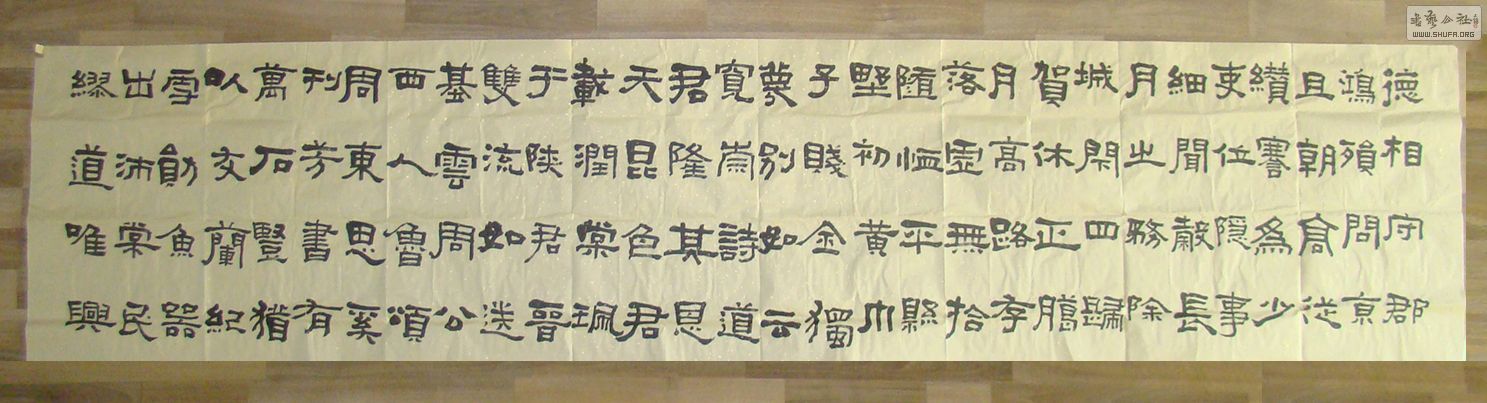 德相守郡
鴻殞問京
且朝高從
纘謇為少
吏位隱事
細聞穀長
月出務除
城閑四歸
賀休正臈
月高路存
落虛無拾
隨恤平縣
野初黃巾
子賤金獨
蔑別如云
寬崇詩道
君隆其恩
天昆色君
載潤棠珮
于陝君晉
雙流如送
基雲周公
西人魯頌
周東思奚
刊芳書有
萬石豎猶
以文蘭紀
雪勛魚器
出沛棠民
繆道唯興
書藝公社
WWW.SHUFA.ORG